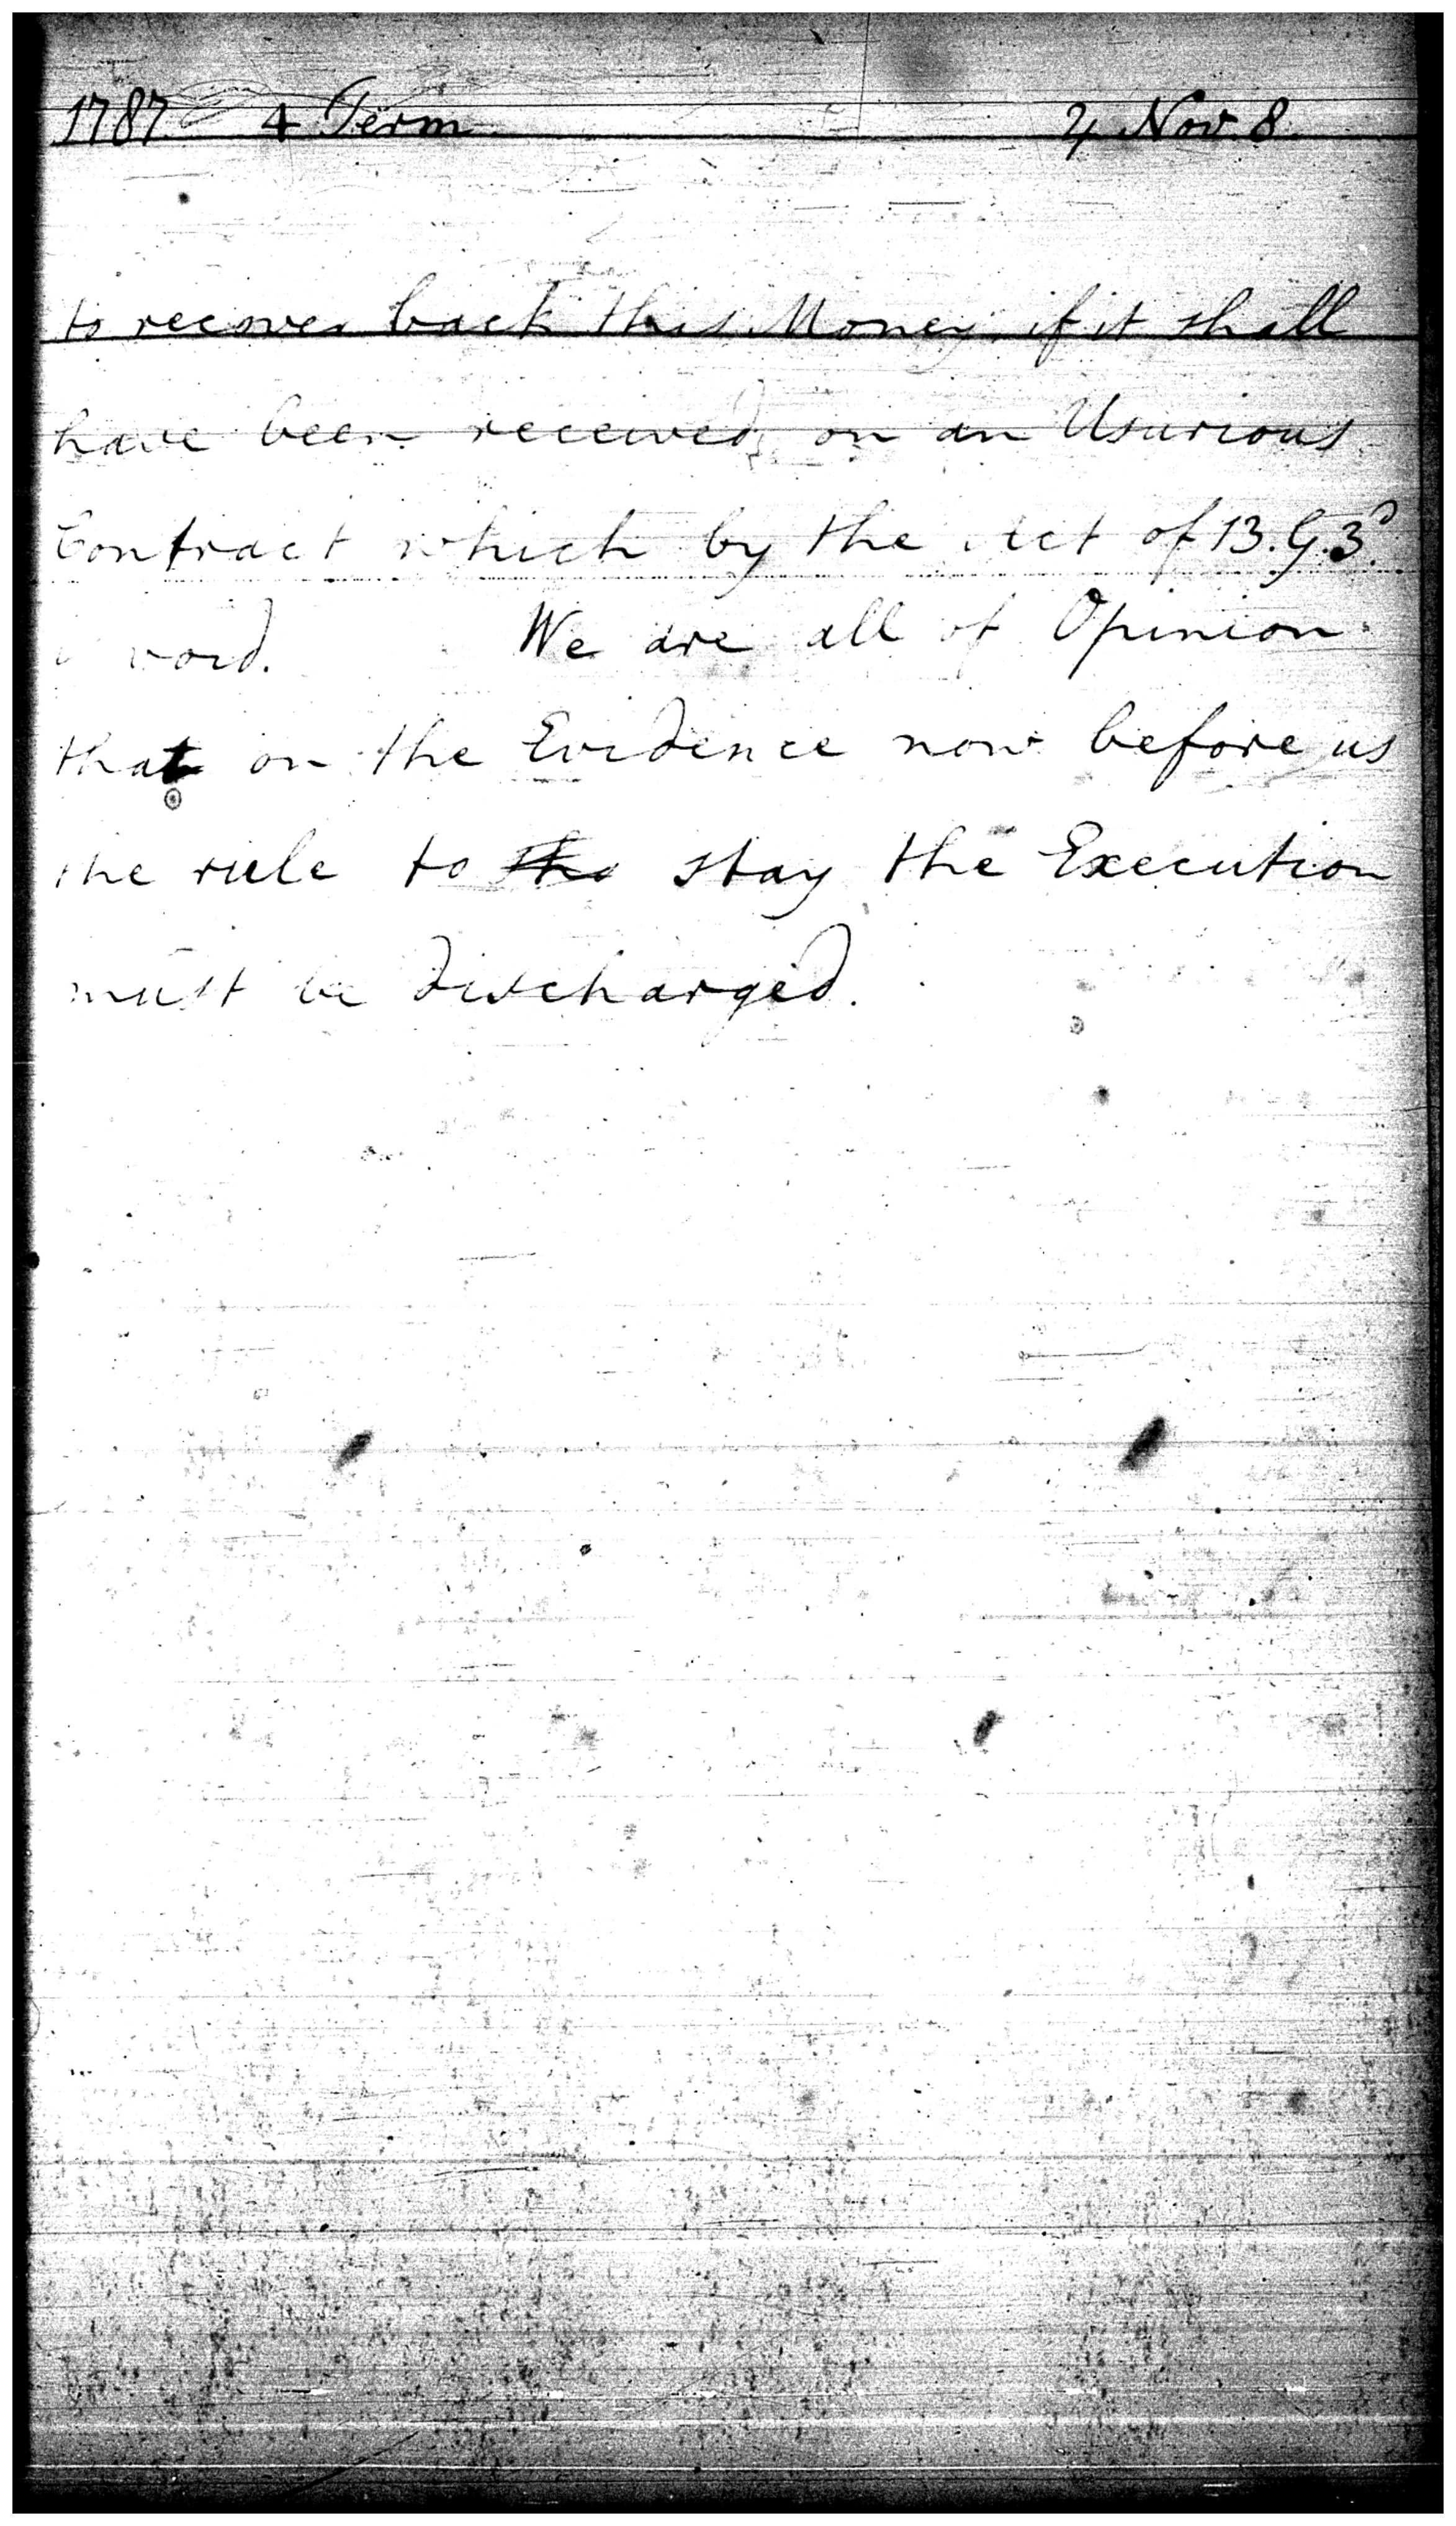 1787 4 Term 4 Nov. 8.
to recover back this Money if it shall
have been received on an Usurious
Contract which by the Act of 13. G. 3.d
void. We are all of Opinion
that on the Evidence now before us
the rule to the stay the Execution
must be discharged.